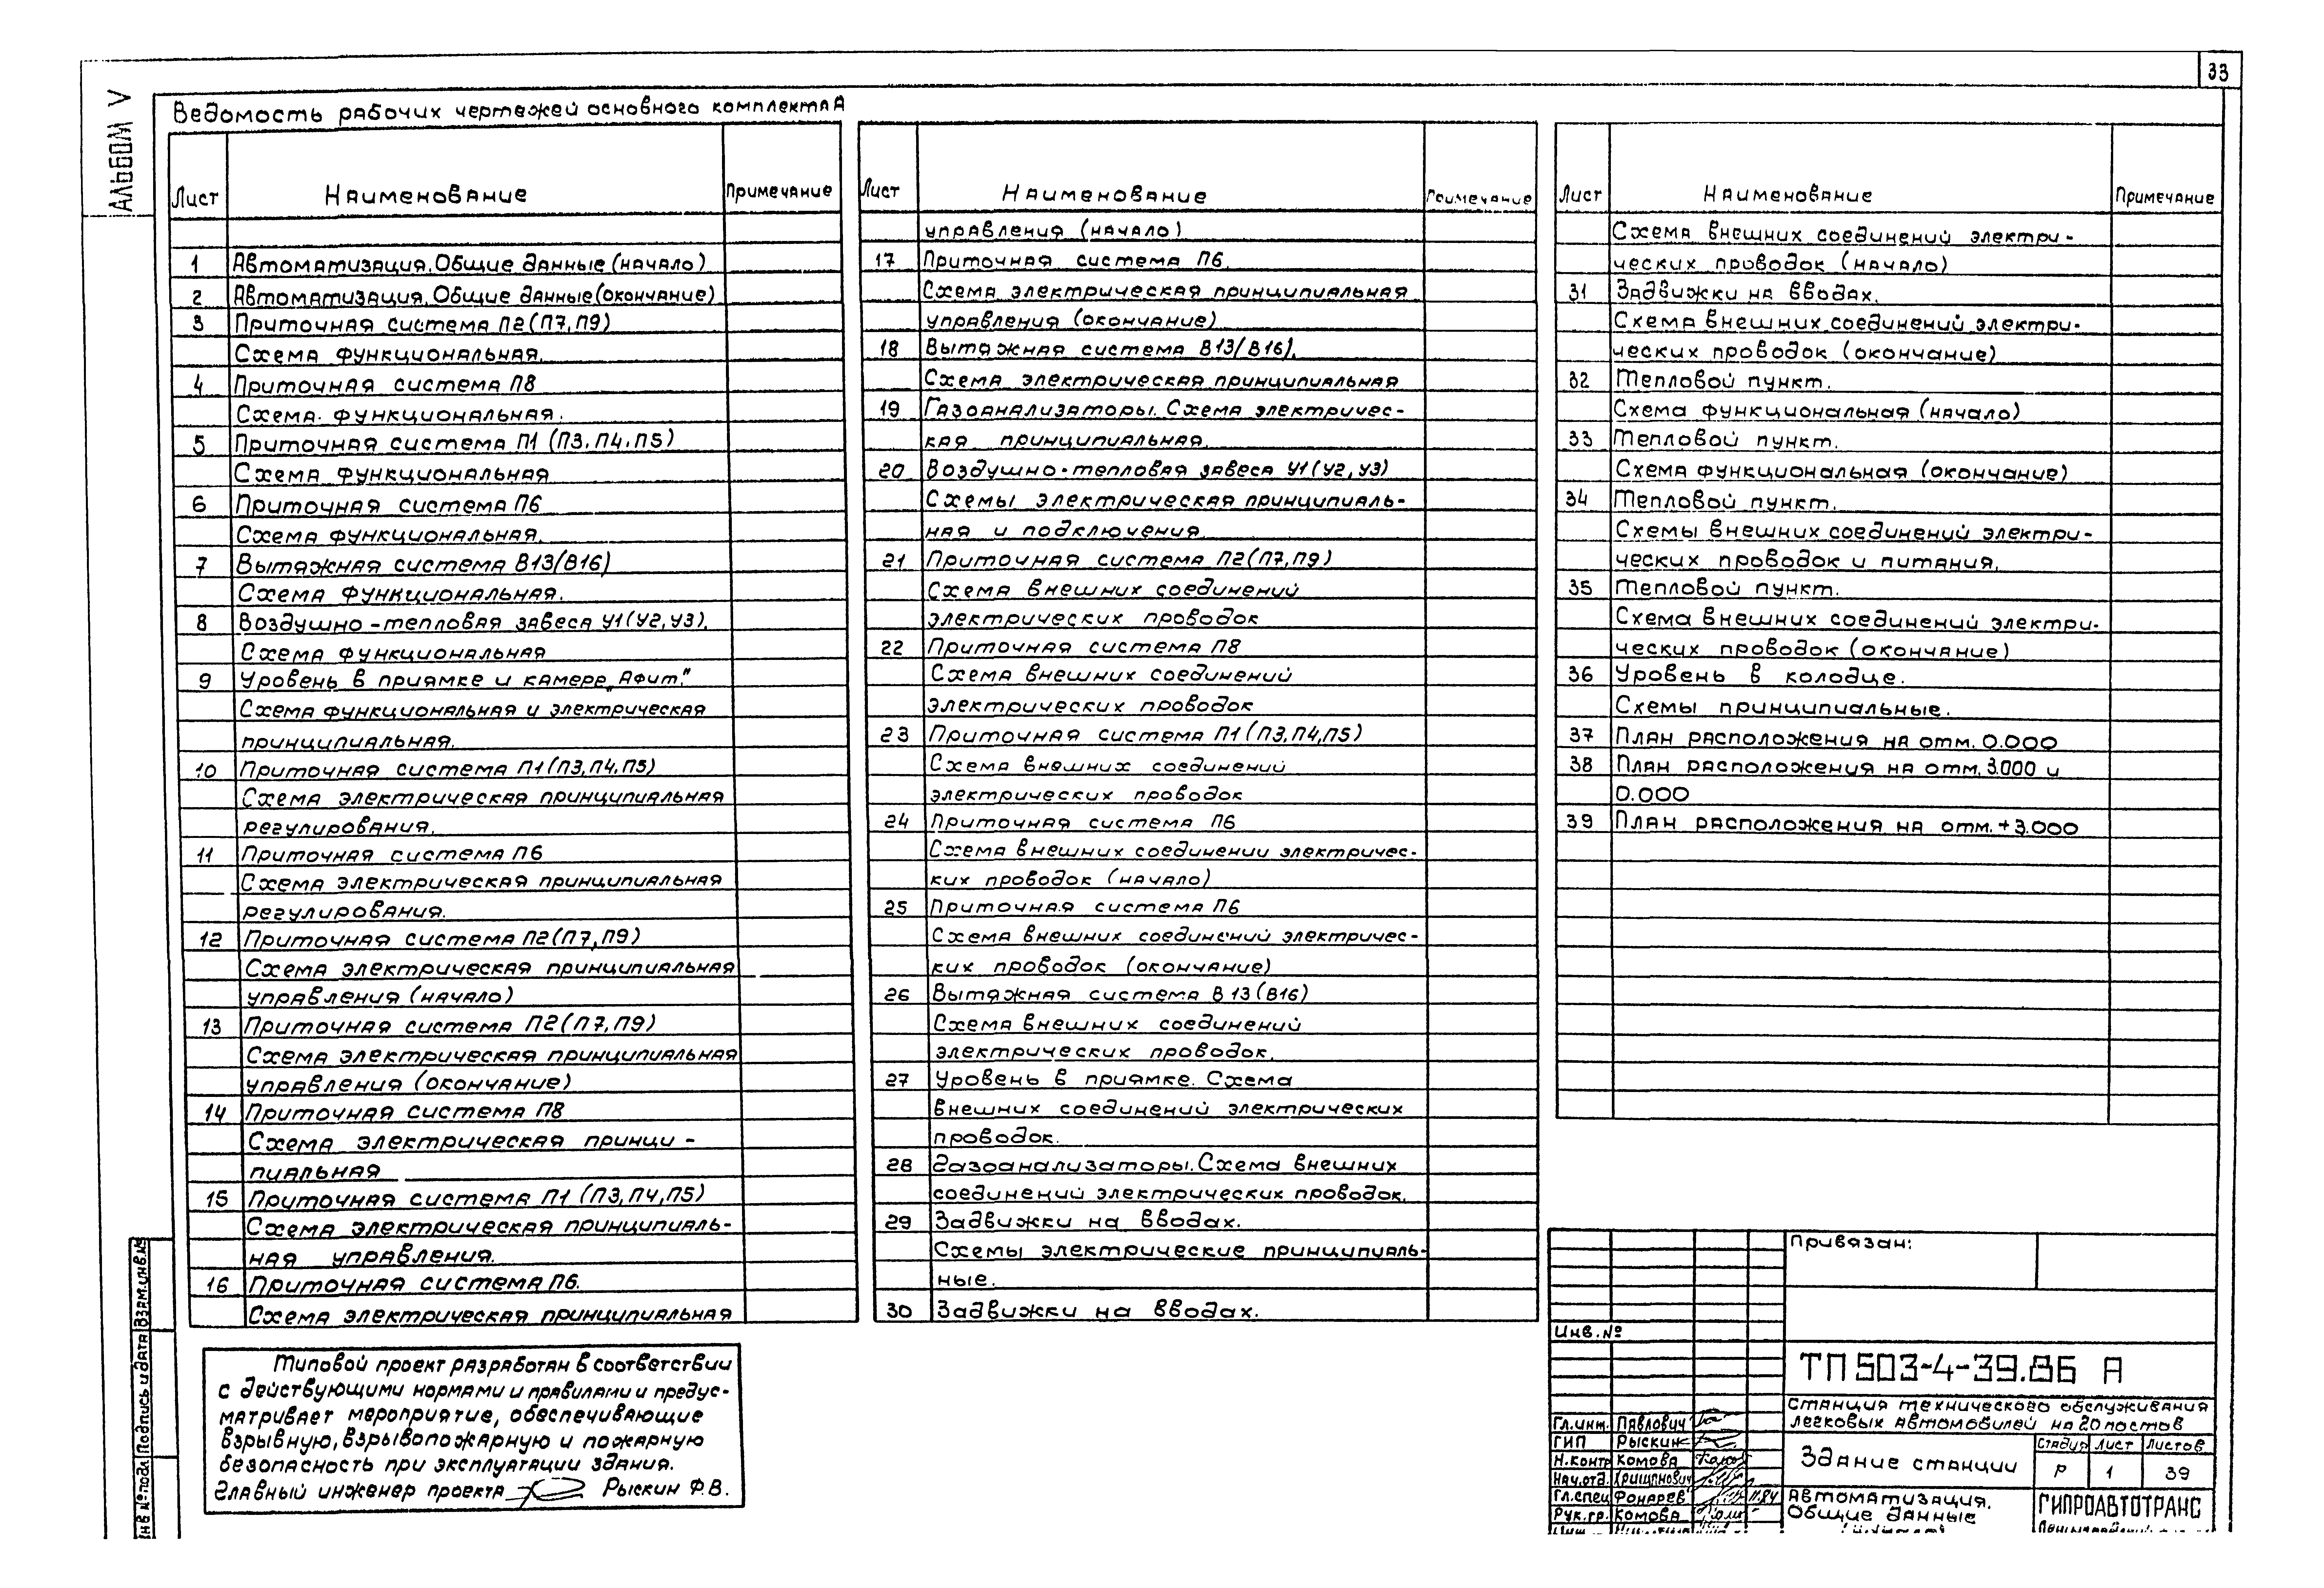 33
Альбом V
Ведомость рабочих чертежей основного комплекта А
Лист Наименование Примечание
1 Автоматизация. Общие данные (начало)
2 Автоматизация. Общие данные (окончание)
3 Приточная система П2 (П7, П9)
Схема функциональная.
4 Приточная система П8
Схема функциональная.
5 Приточная система П1 (П3, П4, П5)
Схема функциональная
6 Приточная система П6
Схема функциональная.
7 Вытяжная система В13(В16)
Схема функциональная.
8 Воздушно-тепловая завеса У1(У2, У3).
Схема функциональная
9 Уровень в приямке и камере „Афит."
Схема функциональная и электрическая
принципиальная.
10 Приточная система П1 (П3, П4, П5)
Схема электрическая принципиальная
регулирования.
11 Приточная система П6
Схема электрическая принципиальная
регулирования.
12 Приточная система П2(П7, П9)
Схема электрическая принципиальная
управления (начало)
13 Приточная система П2 (П7, П9)
Схема электрическая принципиальная
управления (окончание)
14 Приточная система П8
Схема электрическая принци-
пиальная
15 Приточная система П1 (П3, П4, П5)
Схема электрическая принципиаль-
ная управления.
16 Приточная система П6.
Схема электрическая принципиальная
Лист Наименование Примечание
управления (начало)
17 Приточная система П6.
Схема электрическая принципиальная
управления (окончание)
18 Вытяжная система В13(В16).
Схема электрическая принципиальная
19 Газоанализаторы. Схема электричес-
кая принципиальная.
20 Воздушно-тепловая завеса У1(У2, У3)
Схемы электрическая принципиаль-
ная и подключения.
21 Приточная система П2(П7, П9)
Схема внешних соединений
электрических проводок
22 Приточная система П8
Схема внешних соединений
электрических проводок
23 Приточная система П1 (П3, П4, П5)
Схема внешних соединений
электрических проводок
24 Приточная система П6
Схема внешних соединении электричес-
ких проводок (начало)
25 Приточная система П6
Схема внешних соединений электричес-
ких проводок (окончание)
26 Вытяжная система В13 (В16)
Схема внешних соединений
электрических проводок.
27 Уровень в приямке. Схема
внешних соединений электрических
проводок.
28 Газоанализаторы. Схема внешних
соединений электрических проводок.
29 Задвижки на вводах.
Схемы электрические принципиаль-
ные.
30 Задвижки на вводах.
Лист Наименование Примечание
Схема внешних соединений электри-
ческих проводок (начало)
31 Задвижки на вводах.
Схема внешних соединений электри-
ческих проводок (окончание)
32 Тепловой пункт.
Схема функциональная (начало)
33 Тепловой пункт.
Схема функциональная (окончание)
34 Тепловой пункт.
Схемы внешних соединений электри-
ческих проводок и питания.
35 Тепловой пункт.
Схема внешних соединений электри-
ческих проводок (окончание)
36 Уровень в колодце.
Схемы принципиальные.
37 План расположения на отм. 0.000
38 План расположения на отм. 3.000 и
0.000
39 План расположения на отм. +3.000
Типовой проект разработан в соответствии
с действующими нормами и правилами и предус-
матривает мероприятие, обеспечивающие
взрывную, взрывопожарную и пожарную
безопасность при эксплуатации здания.
Главный инженер проекта Рыскин Ф.В.
Взам.инв.№
Подпись и дата
Инв №подл
Привязан:
Инв. №
ТП 503-4-39.86 А
Станция технического обслуживания
легковых автомобилей на 20 постов
Гл.инж. Павлович
ГИП Рыскин
Н.контр Комова
Нач.отд. Хрищанович
Гл.спец Фонарев 11.84
Рук.гр. Комова
Здание станции
Стадия Лист Листов
Р 1 39
Автоматизация.
Общие данные
(начало)
ГИПРОАВТОТРАНС